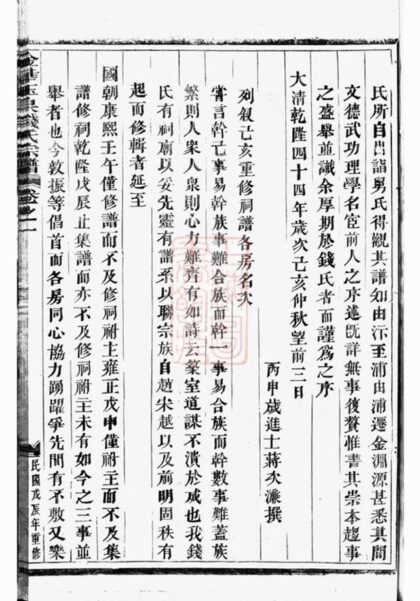 氏所自出詣男氏得觀其譜知由汴至浦由浦遷金淵源甚悉其間
文德武功理學名宦前人之序述旣詳無事後贅惟書其崇本趨事
之盛舉並識余厚期於錢氏者而謹爲之序
大清乾隆四十四年歲次己亥仲秋望前三日
丙申歲進士蔣次濂撰
列叙己亥重修祠譜各房名次
嘗言幹己事易幹族事難合族而幹一事易合族而幹數事難蓋族
繁則人衆人衆則心力難齊有如詩云築室道謀不潰於成也我錢
氏有祠廟以妥先靈有譜系以聯宗族自趙宋越以及前明固秩有
起而修輯者延至
國朝康熙壬午僅修譜而不及修祠祔主雍正戊申僅祔主而不及集
譜修祠乾隆戊辰止集譜而亦不及修祠祔主未有如今之三事並
舉者也今敦振等倡首而各房同心協力踴躍爭先間有不敷又樂
錢氏宗譜
卷之一
民國戊辰年重修